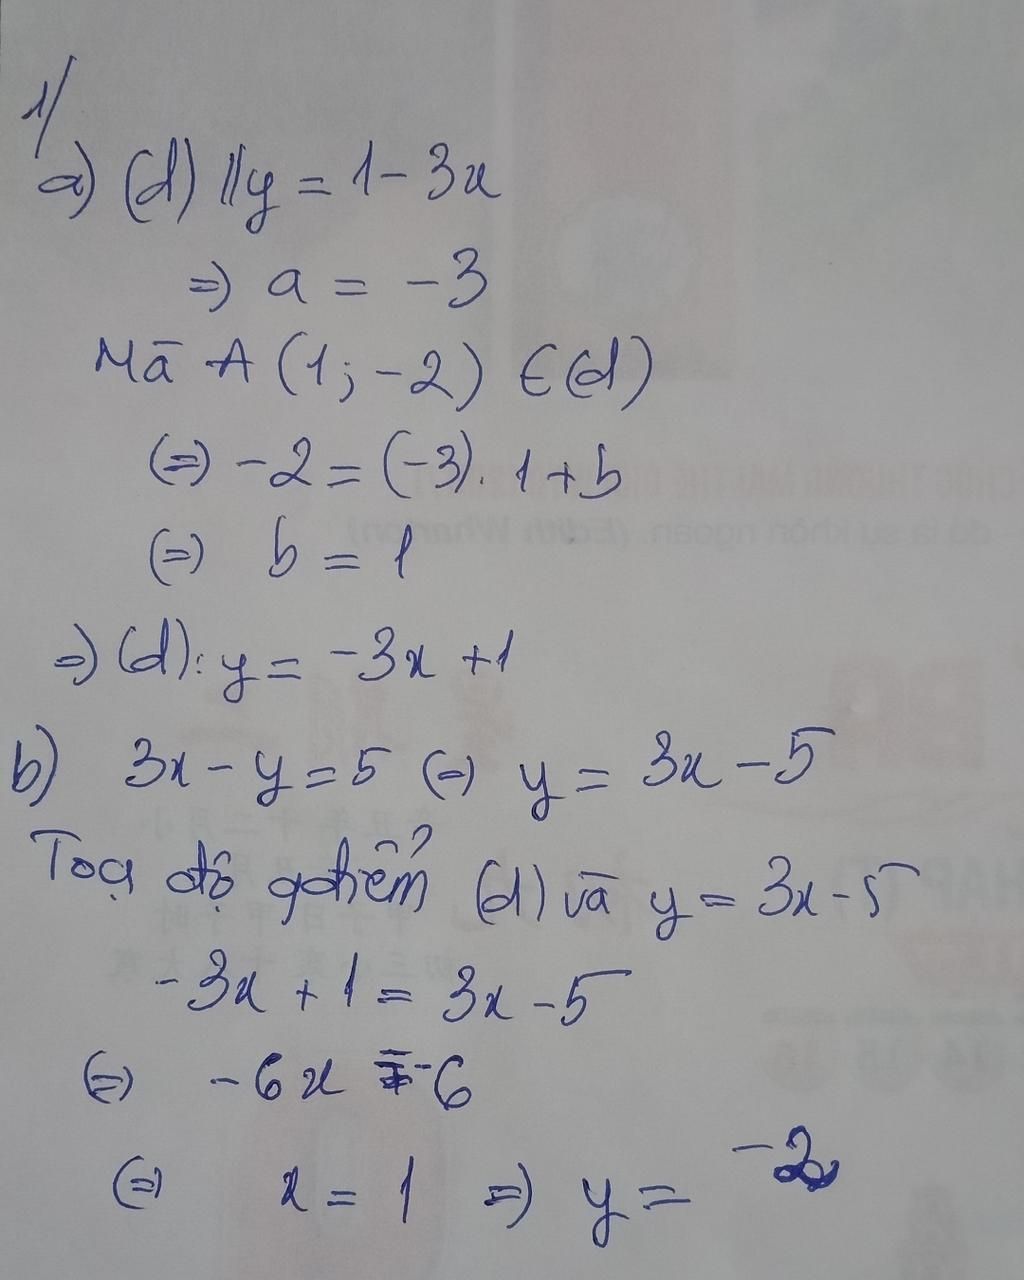 1/
a) (d) // y = 1 - 3x
=> a = -3
Mà A (1; -2) ∈ (d)
(=) -2 = (-3). 1 + b
(=) b = 1
=> (d): y = -3x + 1
b) 3x - y = 5 (=) y = 3x - 5
Toạ độ gđiểm (d) và y = 3x - 5
-3x + 1 = 3x - 5
(=) -6x = -6
(=) x = 1 => y = -2